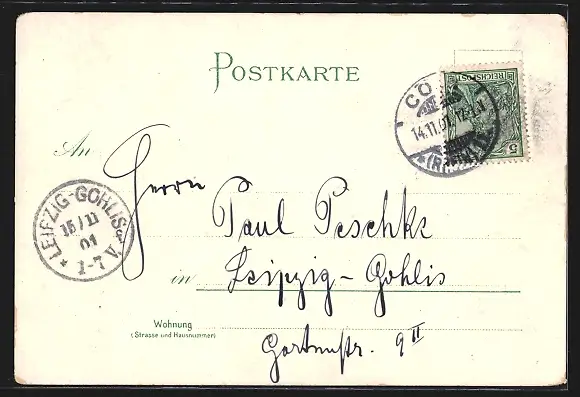 POSTKARTE
REICHSPOST
5
14.11.01. 12-1 N
An
Herrn
Paul Peschke
LEIPZIG-GOHLIS
15/11
01
1-7 V.
in Leipzig-Gohlis
Wohnung
(Strasse und Hausnummer)
Gartenstr. 9 II